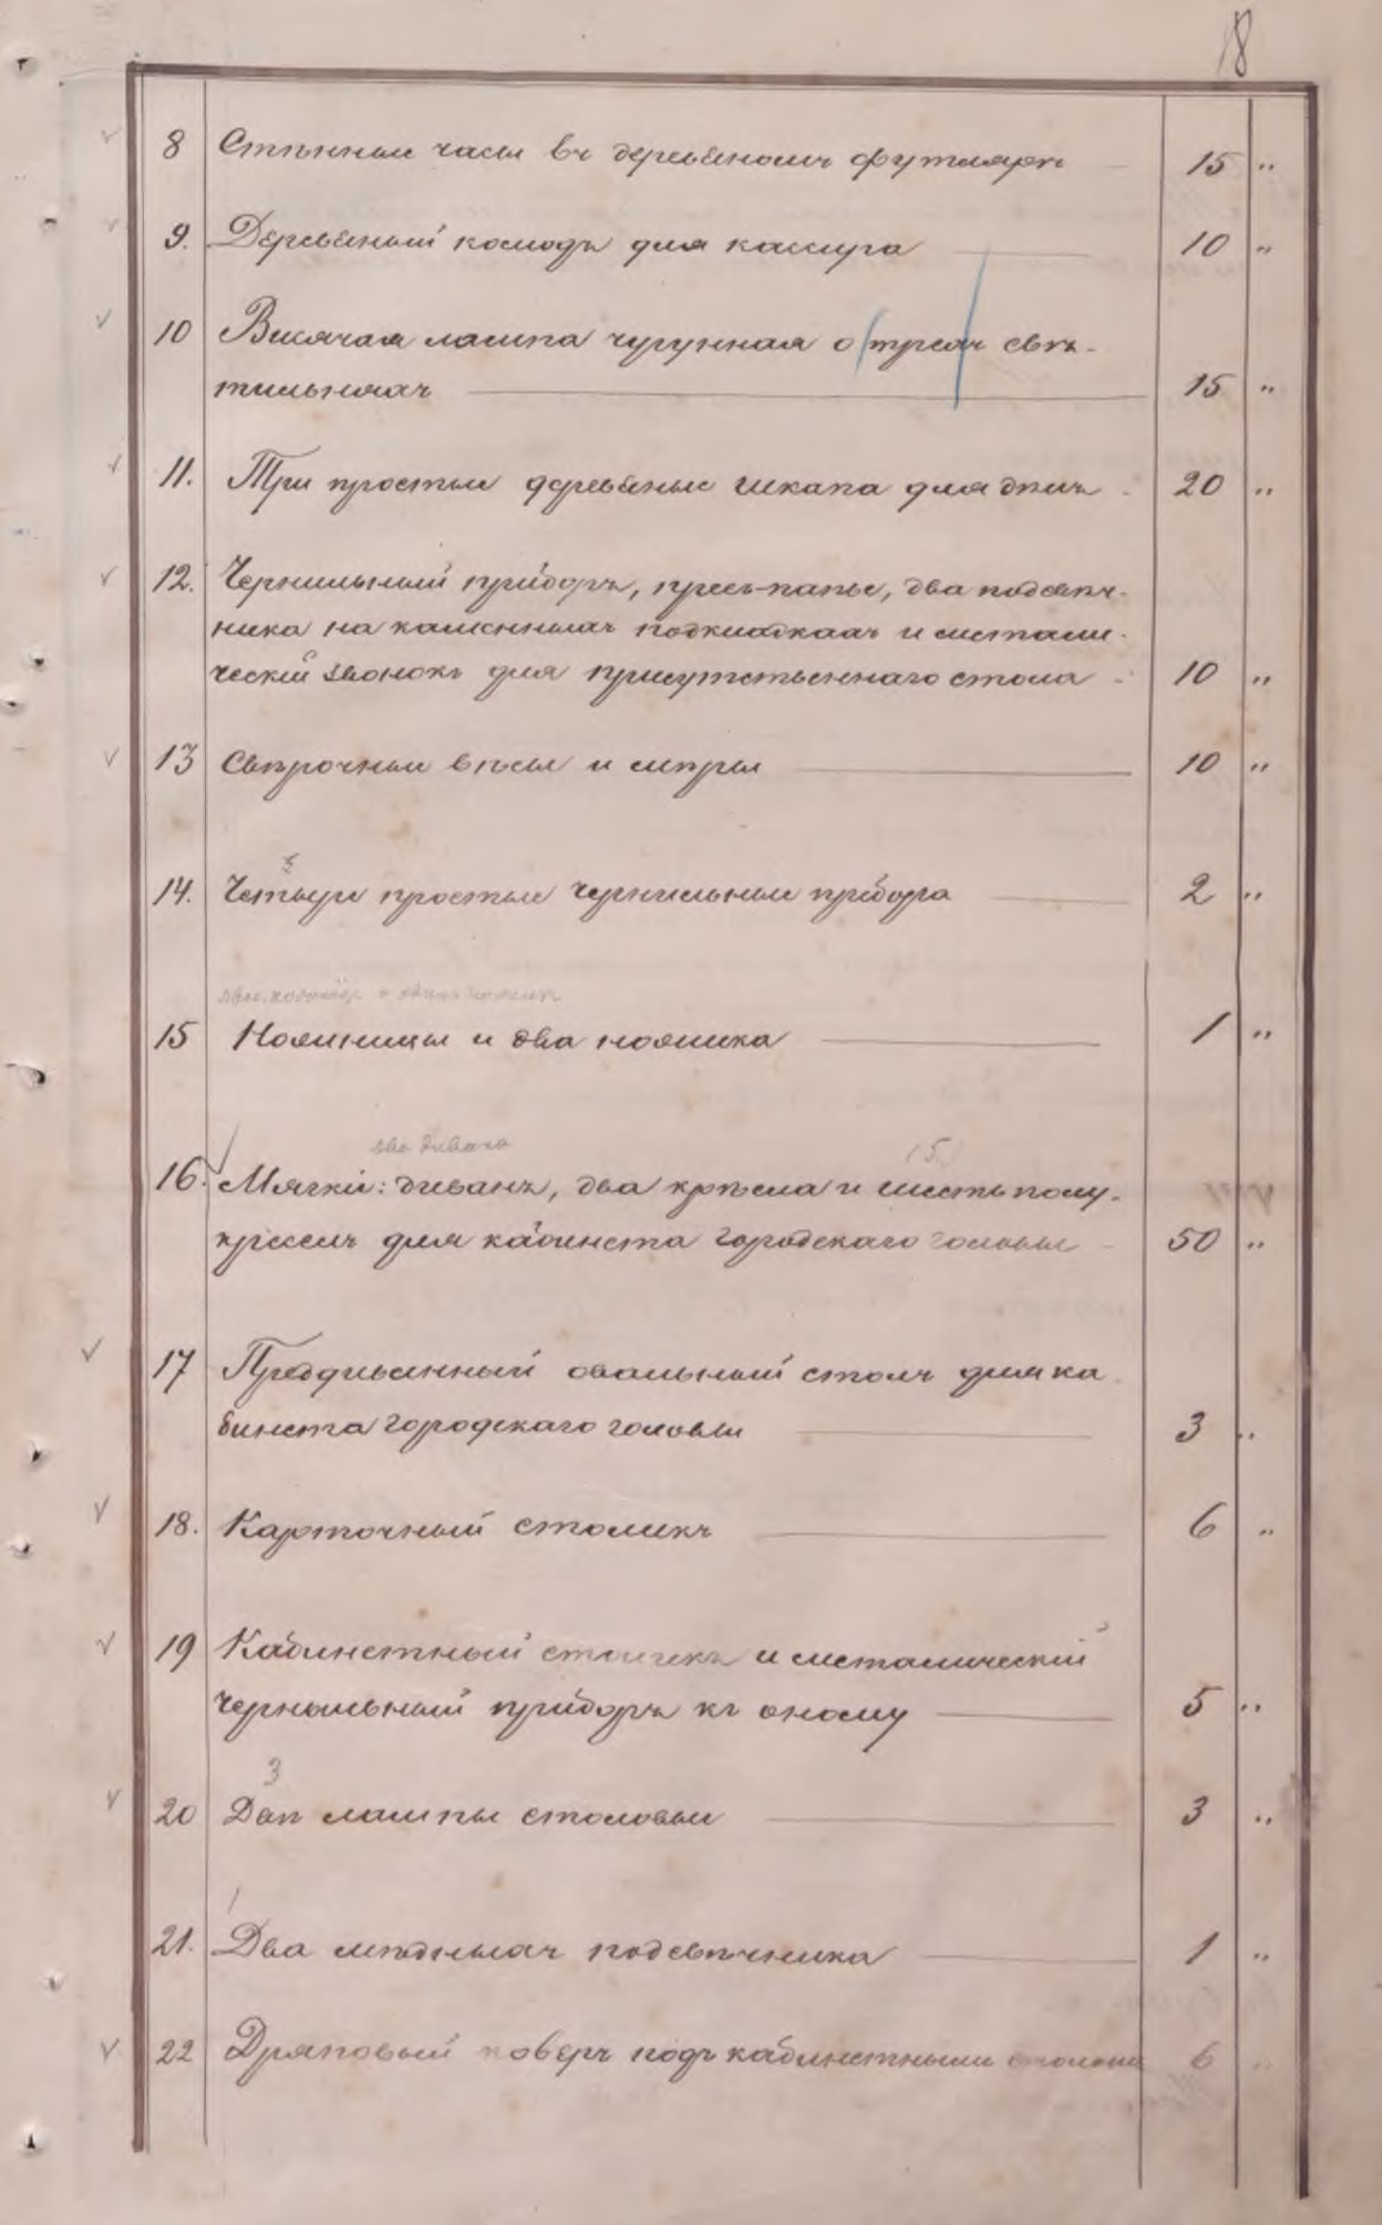 18
8 Стѣнные часы въ деревяномъ футлярѣ 15 "
9. Деревяный комодъ для кассира 10 "
10 Висячая лампа чугунная о трехъ свѣ-
тильняхъ 15 "
11. Три простые деревяные шкапа для дѣлъ 20 "
12. Чернильный приборъ, пресъ-папье, два подсвѣч-
ника на каменныхъ подкладкахъ и метали-
ческій звонокъ для присутственнаго стола 10 "
13 Свѣрочные вѣсы и мѣры 10 "
14. Четыре простые чернильные прибора 2 "
15 Ножницы и два ножика 1 "
два дивана 5
16. Мягкіе: диванъ, два кресла и шесть полу-
креселъ для кабинета городскаго головы 50 "
17 Преддиванный овальный столъ для ка
бинета городскаго головы 3 "
18. Карточный столикъ 6 "
19 Кабинетный столикъ и металическій
чернильный приборъ къ оному 5 "
3
20 Двѣ лампы столовые 3 "
21. Два мѣдныхъ подсвѣчника 1 "
22 Дряповый коверъ подъ кабинетными столами 6 "